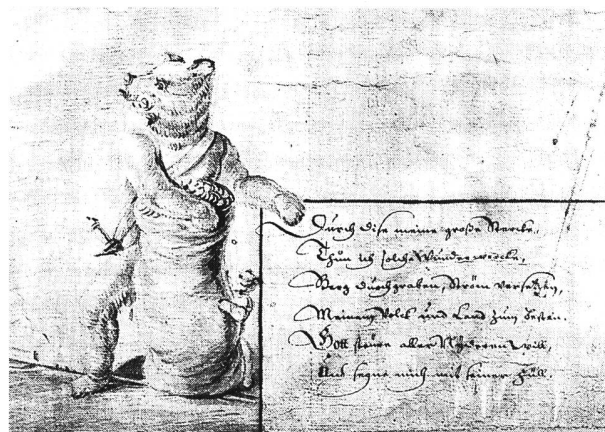 Durch dise meine große Starcke,
Thůn ich solche Wůnderwercke,
Berg důrchgraben, Ström versetzen,
Meinem Volck ůnd Land zům besten.
Gott steüre aller Widerwill,
Ůnd segne mich mit seiner Hüll.